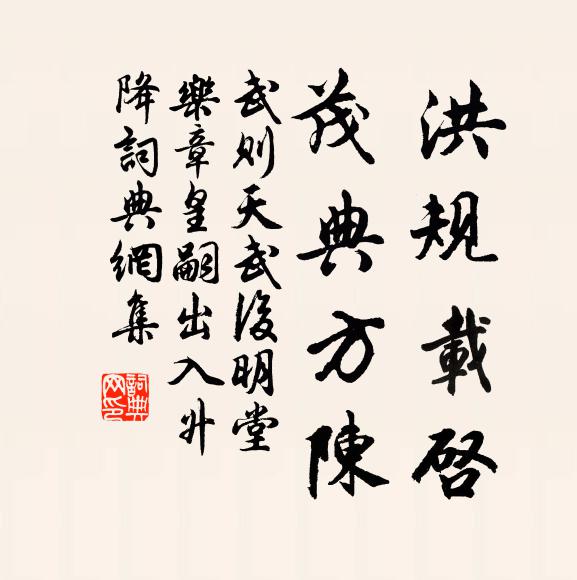 洪規載啓
茂典方陳
武則天武後明堂
樂章皇嗣出入升
降詞典網集
詞典网印